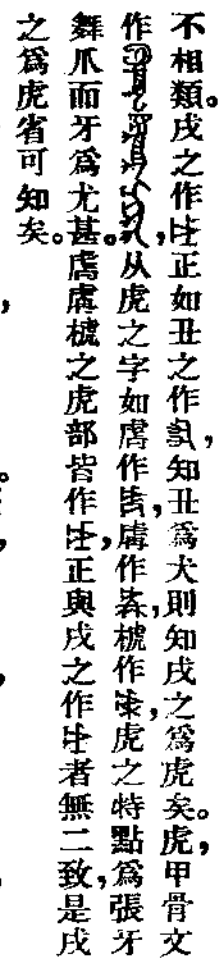 不相類。戌之作正如丑之作，知丑爲犬則知戌之爲虎矣。虎，甲骨文
作，从虎之字如虐作，虜作，樚作虎之特點爲張牙
舞爪而牙爲尤甚。虐虜樚之虎部皆作，正與戌之作者無二致，是戌
之爲虎省可知矣。